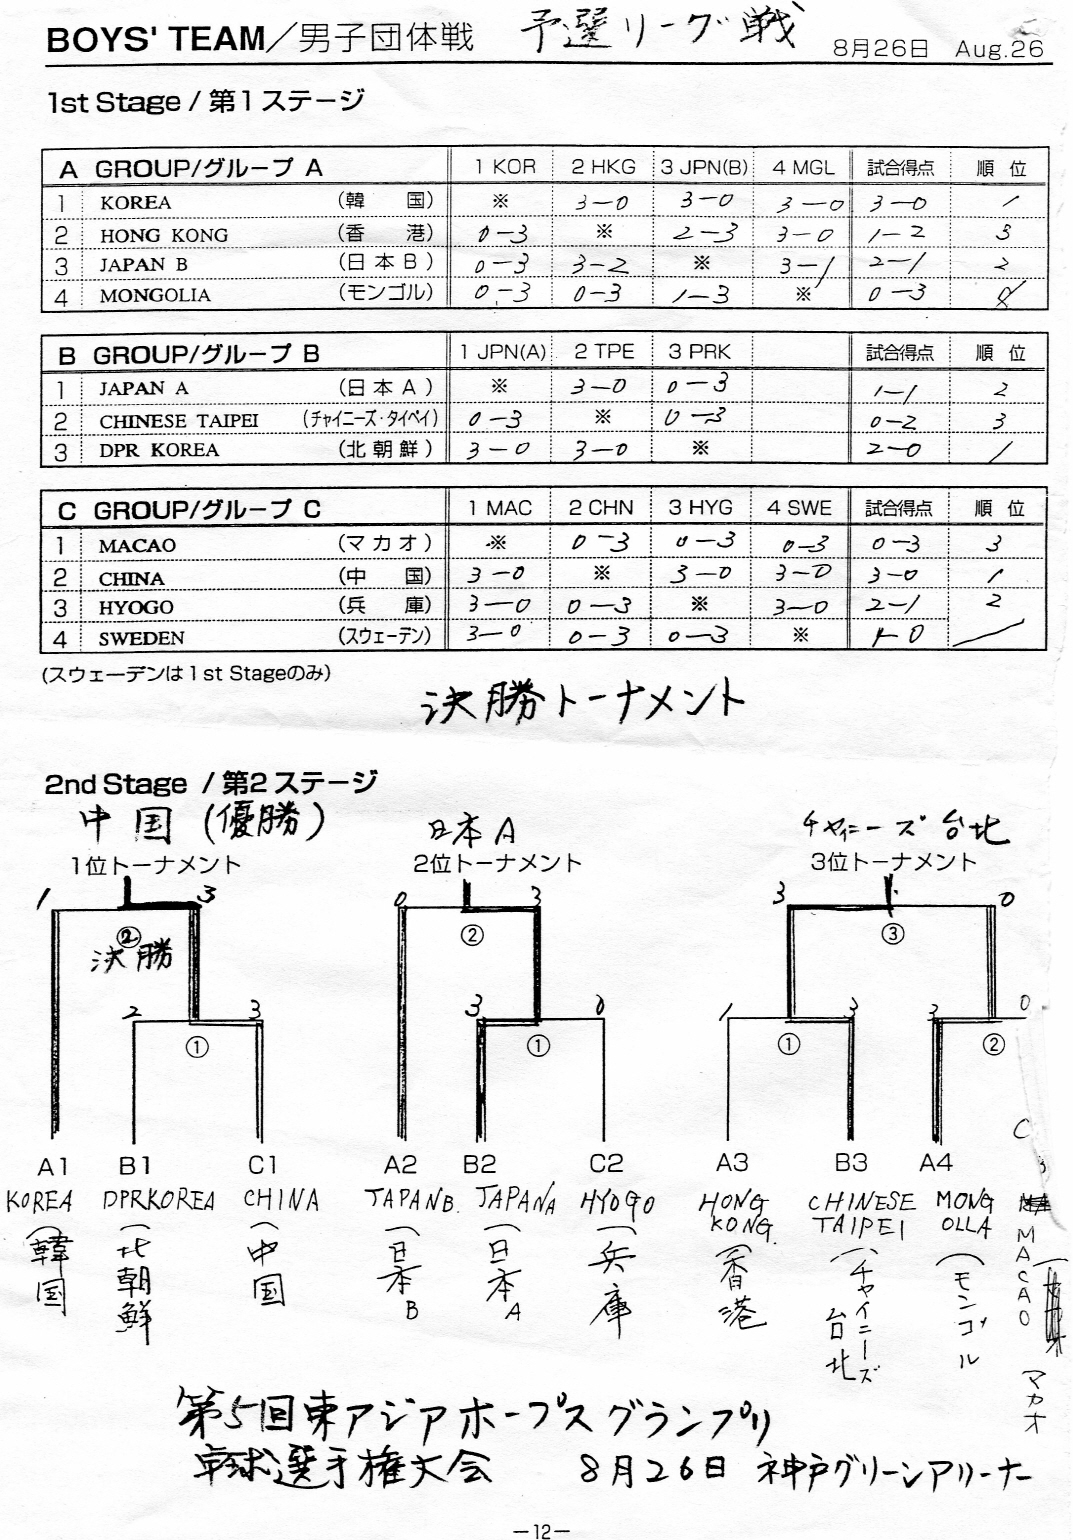 BOYS' TEAM/男子団体戦 予選リーグ戦 8月26日 Aug.26
1st Stage / 第1ステージ
A GROUP/グループ A 1 KOR 2 HKG 3 JPN(B) 4 MGL 試合得点 順位
1 KOREA (韓国) ※ 3-0 3-0 3-0 3-0 1
2 HONG KONG (香港) 0-3 ※ 2-3 3-0 1-2 3
3 JAPAN B (日本B) 0-3 3-2 ※ 3-1 2-1 2
4 MONGOLIA (モンゴル) 0-3 0-3 1-3 ※ 0-3
B GROUP/グループ B 1 JPN(A) 2 TPE 3 PRK 試合得点 順位
1 JAPAN A (日本A) ※ 3-0 0-3 1-1 2
2 CHINESE TAIPEI (チャイニーズ・タイペイ) 0-3 ※ 0-3 0-2 3
3 DPR KOREA (北朝鮮) 3-0 3-0 ※ 2-0 1
C GROUP/グループ C 1 MAC 2 CHN 3 HYG 4 SWE 試合得点 順位
1 MACAO (マカオ) ※ 0-3 0-3 0-3 0-3 3
2 CHINA (中国) 3-0 ※ 3-0 3-0 3-0 1
3 HYOGO (兵庫) 3-0 0-3 ※ 3-0 2-1 2
4 SWEDEN (スウェーデン) 3-0 0-3 0-3 ※
(スウェーデンは1st Stageのみ)
決勝トーナメント
2nd Stage / 第2ステージ
中国(優勝) 日本A チャイニーズ台北
1位トーナメント 2位トーナメント 3位トーナメント
1 3 0 3 3 0
② ② ③
決勝
2 3 3 0 1 3 3 0
① ① ① ②
C
A1 B1 C1 A2 B2 C2 A3 B3 A4 3
KOREA DPRKOREA CHINA JAPANB. JAPANA HYOGO HONG KONG. CHINESE TAIPEI MONGOLLA MACAO
(韓国 (北朝鮮 (中国 (日本B (日本A (兵庫 (香港 (チャイニーズ台北 (モンゴル マカオ
第5回東アジアホープスグランプリ
卓球選手権大会 8月26日 神戸グリーンアリーナ
-12-